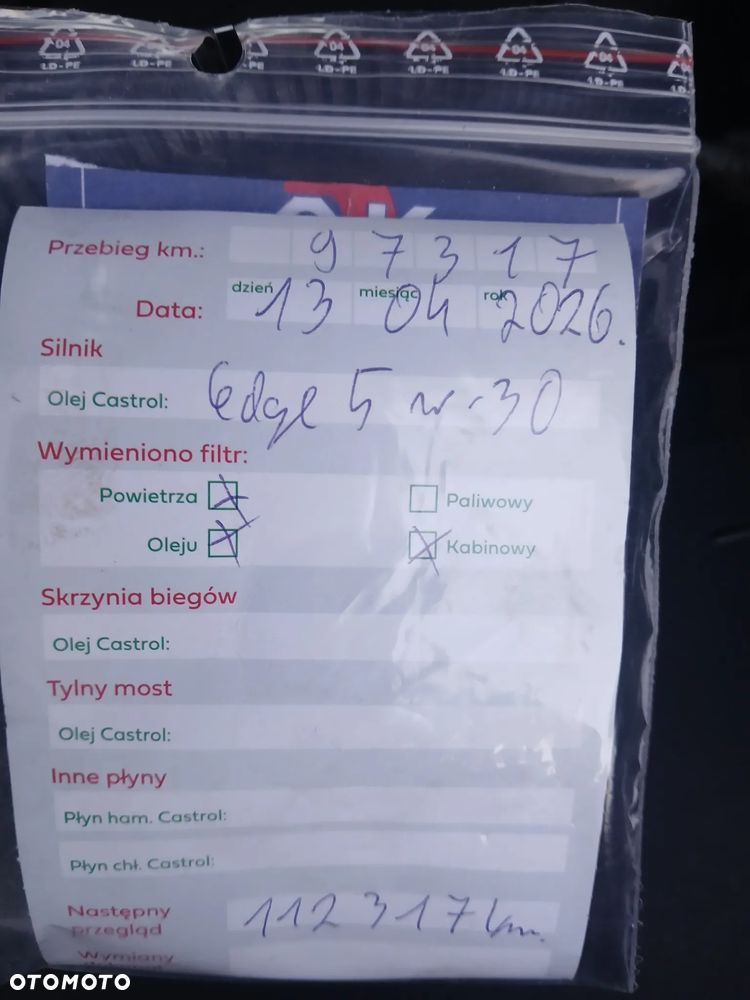 04 04 04 04 04
LD-PE LD-PE LD-PE LD-PE LD-PE
Przebieg km.: 97317
dzień miesiąc rok
Data: 13 04 2026.
Silnik
Olej Castrol: Edge 5 w-30
Wymieniono filtr:
Powietrza Paliwowy
Oleju Kabinowy
Skrzynia biegów
Olej Castrol:
Tylny most
Olej Castrol:
Inne płyny
Płyn ham. Castrol:
Płyn chł. Castrol:
Następny 112317 km.
przegląd
Wymiany
OTOMOTO